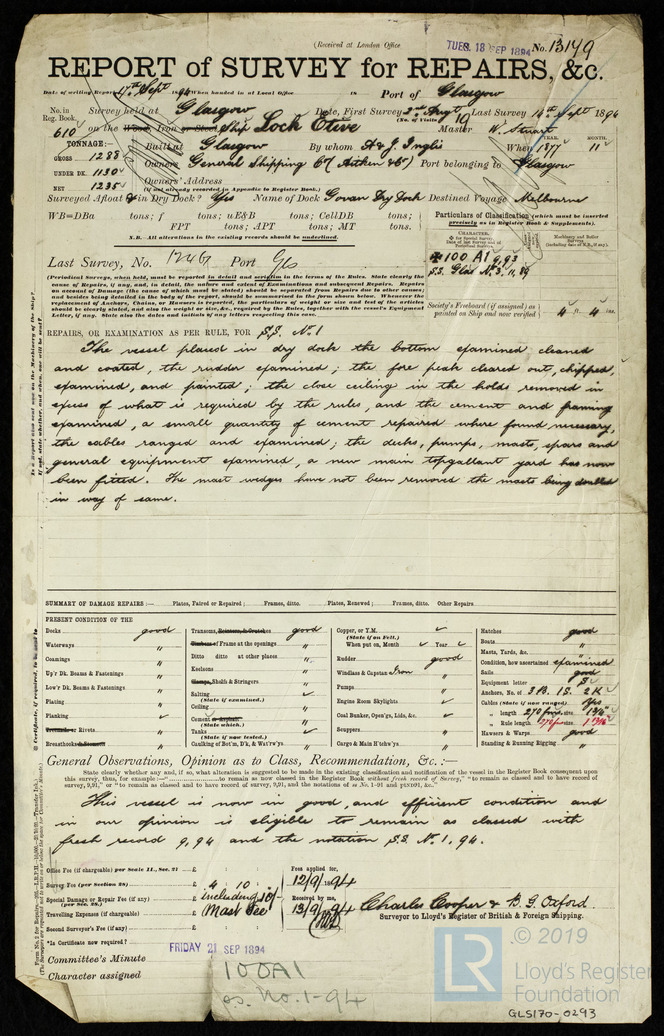 (Received at London Office
TUES. 18 SEP 1894 No. 13149
REPORT of SURVEY for REPAIRS, &c.
Date of writing Report 17th Sept 1894 When handed in at Local Office 18 Port of Glasgow
No. in Reg. Book. Survey held at Glasgow Date, First Survey 2nd Augt Last Survey 14th Sept 1894
(No. of Visits 10)
610 on the Wood, Iron or Steel Ship Loch Etive Master W. Stuart
TONNAGE:—
GROSS 1288 Built at Glasgow By whom A & J. Inglis When 1877 YEAR. 11 MONTH.
UNDER DK. 1130 Owners General Shipping Co (Aitken & Co) Port belonging to Glasgow
NET 1235 Owners' Address
(if not already recorded in Appendix to Register Book.)
Surveyed Afloat & in Dry Dock? Yes Name of Dock Govan Dry Dock Destined Voyage Melbourne
WB=DBa tons; f tons; uE&B tons; CellDB tons;
FPT tons; APT tons; MT tons.
N.B.—All alterations in the existing records should be underlined.
Particulars of Classification (which must be inserted precisely as in Register Book & Supplements).
CHARACTER.
✠ 100 A1 9,93
S.S. Gls N. 3. 11, 89
Last Survey, No. Port Gls
(Periodical Surveys, when held, must be reported in detail and seriatim in the terms of the Rules. State clearly the
cause of Repairs, if any, and, in detail, the nature and extent of Examinations and subsequent Repairs. Repairs
on account of Damage (the cause of which must be stated) should be separated from Repairs due to other causes;
and besides being detailed in the body of the report, should be summarized in the form shown below. Whenever the
replacement of Anchors, Chains, or Hawsers is reported, the particulars of weight or size and test of the articles
should be clearly stated, and also the weight or size, &c., required by the Rules, together with the vessel's Equipment
Letter, if any. State also the dates and initials of any letters respecting this case.
Society's Freeboard (if assigned) as painted on Ship and now verified 4 ft. 4 ins.
REPAIRS, OR EXAMINATION AS PER RULE, FOR S.S. No. 1
The vessel placed in dry dock the bottom examined cleaned
and coated, the rudder examined; the fore peak cleared out, chipped,
examined, and painted; the close ceiling in the holds removed in
excess of what is required by the rules, and the cement and framing
examined, a small quantity of cement repaired where found necessary,
the cables ranged and examined; the decks, pumps, masts, spars and
general equipment examined, a new main topgallant yard has now
been fitted. The mast wedges have not been removed the masts being doubled
in way of same.
SUMMARY OF DAMAGE REPAIRS:— Plates, Paired or Repaired; Frames, ditto. Plates, Renewed; Frames, ditto. Other Repairs
PRESENT CONDITION OF THE
Decks good
Waterways "
Coamings "
Up'r Dk. Beams & Fastenings "
Low'r Dk. Beams & Fastenings "
Plating "
Planking
Treenails or Rivets "
Breasthooks & Pointers "
Transoms, Pointers, & Crutches good
Timbers of Frame at the openings "
Ditto ditto at other places "
Keelsons "
Clamps, Shelfs & Stringers "
Salting
(State if examined.)
Ceiling "
Cement or Asphalt "
(State which.)
Tanks
(State if now tested.)
Caulking of Bot'm, D'k, & Wat'rw'ys. "
Copper, or Y.M.
(State if on Felt.)
When put on, Month Year
Rudder good
Windlass & Capstan Iron "
Pumps "
Engine Room Skylights
Coal Bunker, Open'gs, Lids, &c.
Scuppers "
Cargo & Main H'tchw'ys. "
Hatches good
Boats "
Masts, Yards, &c. "
Condition, how ascertained examined
Sails good
Equipment letter S
Anchors, No. of 3 B. 1 S. 2 K
Cables (State if now ranged) Yes
" length 270 size 1 13/16
" Rule length 270 size 1 13/16
Hawsers & Warps good
Standing & Running Rigging "
General Observations, Opinion as to Class, Recommendation, &c.:—
State clearly whether any and, if so, what alteration is suggested to be made in the existing classification and notification of the vessel in the Register Book consequent upon
This vessel is now in good, and efficient condition and
in our opinion is eligible to remain as classed with
fresh record 9,94 and the notation S.S. No. 1, 94.
Office Fee (if chargeable) per Scale II., Sec. 21 £
Survey Fee (per Section 28) £ 4 10
Special Damage or Repair Fee (if any) (per Sec. 28.) £ including 10/-
Travelling Expenses (if chargeable) £ Mast Fee
Second Surveyor's Fee (if any) £
Fees applied for, 12/9/1894
Received by me, 13/9/1894
Charles Cooper & B. G. Oxford
Surveyor to Lloyd's Register of British & Foreign Shipping.
*Is Certificate now required?
FRIDAY 21 SEP 1894
Committee's Minute
Character assigned
100A1
s.s. No. 1-94
LR
© 2019
Lloyd's Register
Foundation
GLS170-0293